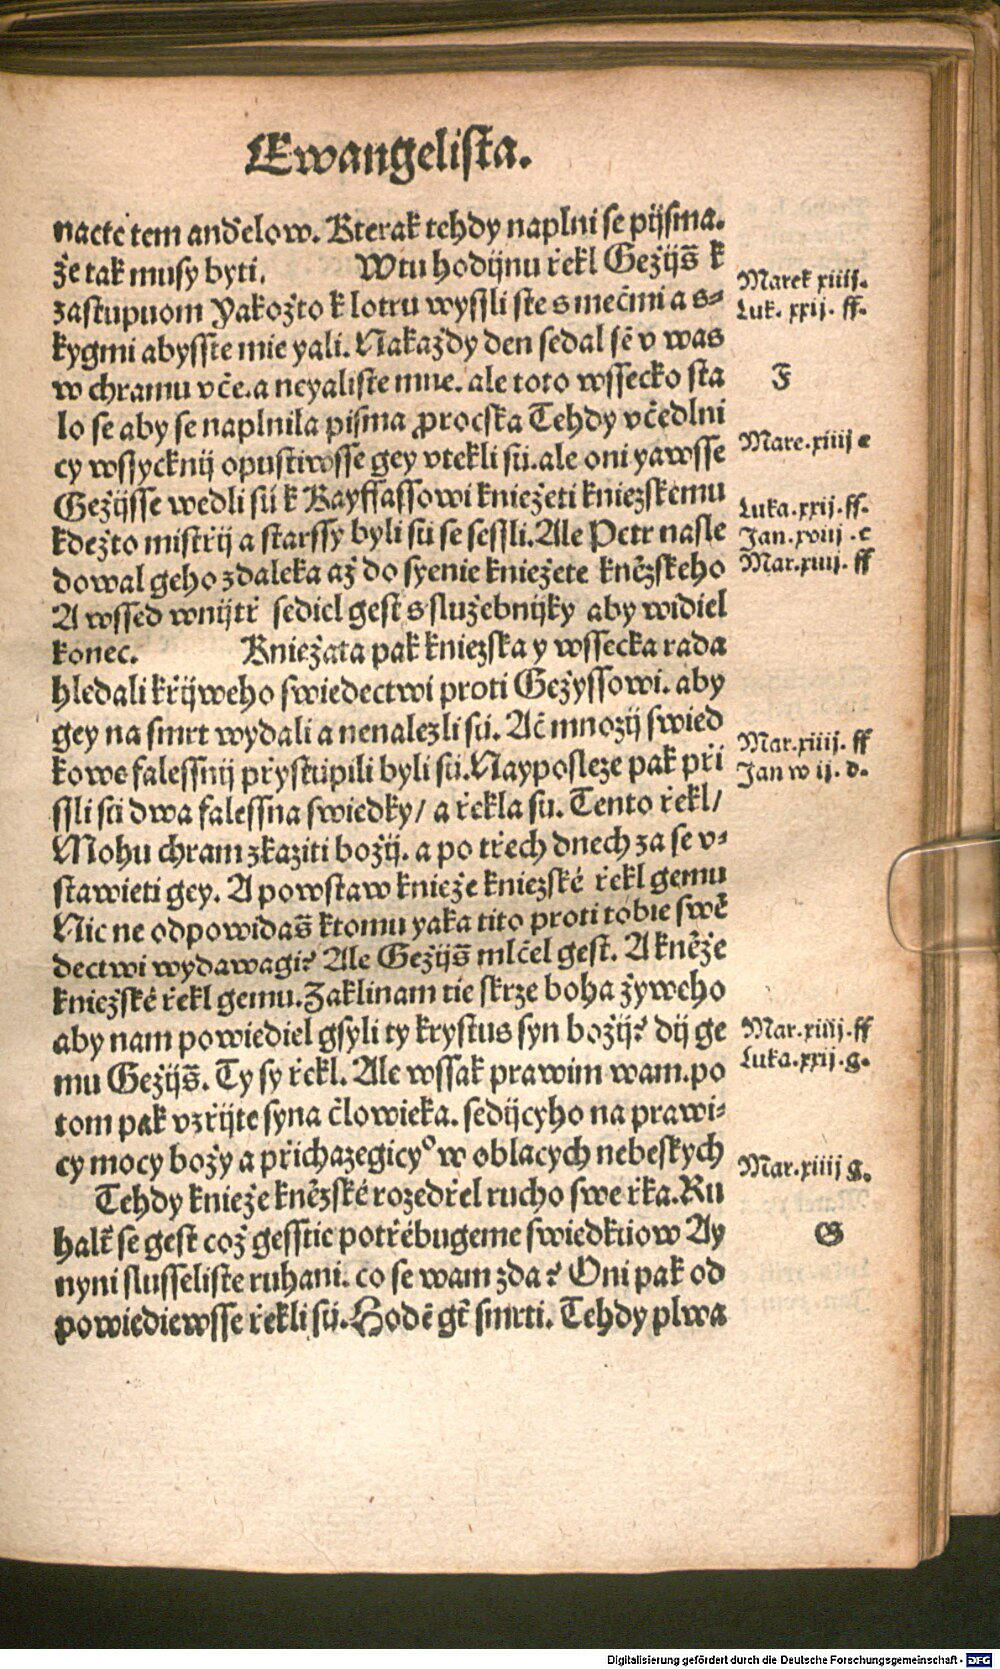 Ewangelista.
nacte tem anďelow. Kterak tehdy naplni se pijsma.
že tak musy byti. W tu hodijnu řekl Gežijs̃ k
zastupuom Yakožto k lotru wyssli ste s mečmi a s-
kygmi abysste mie yali. Nakaždy den sedal sẽ v was
w chramu vče. a neyaliste mne. ale toto wssecko sta
lo se aby se naplnila pisma ꝓrocska Tehdy včedlni
cy wssycknij opustiwsse gey vtekli sú. ale oni yawsse
Gežijsse wedli sú k Kayffassowi kniežeti kniezskemu
kdežto mistřij a starssy byli sú se sessli. Ale Petr nasle
dowal geho zdaleka až do syenie kniežete knězskeho
A wssed wnijtř sediel gest s služebnijky aby widiel
konec. Kniežata pak kniezska y wssecka rada
hledali křijweho swiedectwi proti Gežyssowi. aby
gey na smrt wydali a nenalezli sú. Ač mnozij swied
kowe falessnij přystúpili byli sú. Nayposleze pak při
ssli sú dwa falessna swiedky/ a řekla su. Tento řekl/
Mohu chram zkaziti božij. a po třech dnech za se v-
stawieti gey. A powstaw knieže kniezské řekl gemu
Nic ne odpowidas̃ ktomu yaka tito proti tobie swě
dectwi wydawagi? Ale Gežijs̃ mlčel gest. A kněže
kniežské řekl gemu. Zaklinam tie skrze boha žyweho
aby nam powiediel gsyli ty krystus syn božij? dij ge
mu Gežijs̃. Ty sy řekl. Ale wssak prawim wam. po
tom pak vzřijte syna člowieka. sedijcyho na prawi-
cy mocy božy a přichazegicyº w oblacych nebeskych
Tehdy knieže knězské rozedřel rucho swe řka. Ru
halť se gest což gesstie potřěbugeme swiedkuow Ay
nyni slusseliste ruhani. co se wam zda? Oni pak od
powiediewsse řekli sú. Hodẽ gť smrti. Tehdy plwa
Marek xiiij.
Luk. xxij. ff.
F
Mare. xiiij e
Luka. xxij. ff.
Jan. xviij. c
Mar. xiiij. ff
Mar. xiiij. ff
Jan w ij. d.
Mar. xiiij. ff
Luka. xxij. g.
Mar. xiiij g.
G
Digitalisierung gefördert durch die Deutsche Forschungsgemeinschaft - DFG